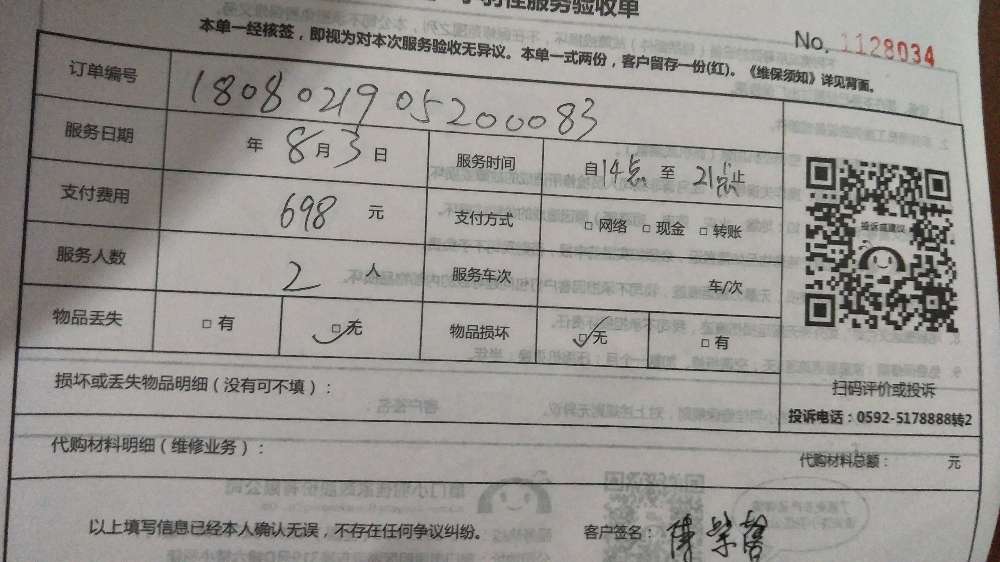 服务验收单
No. 1128034
本单一经核签，即视为对本次服务验收无异议。本单一式两份，客户留存一份(红)。《维保须知》详见背面。
订单编号 1808021905200083
服务日期 年 8月3日 服务时间 自14点 至 21点止
支付费用 698 元 支付方式 □ 网络 □ 现金 □ 转账
投诉或建议
服务人数 2 人 服务车次 车/次
物品丢失 □ 有 ☑ 无 物品损坏 ☑ 无 □ 有
扫码评价或投诉
投诉电话：0592-5178888转2
损坏或丢失物品明细（没有可不填）：
代购材料明细（维修业务）： 代购材料总额： 元
以上填写信息已经本人确认无误，不存在任何争议纠纷。 客户签名：陈